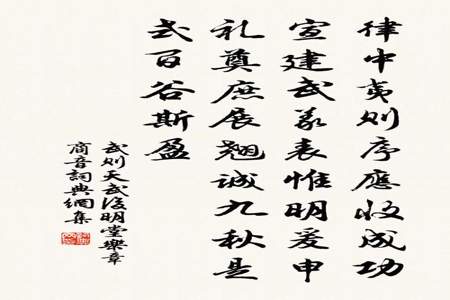 律中夷则序應收成功
宣建武義表惟明爰申
礼奠庶展翹誠九秋是
式百谷斯盈
武则天武後明堂樂章
商音詞典網集